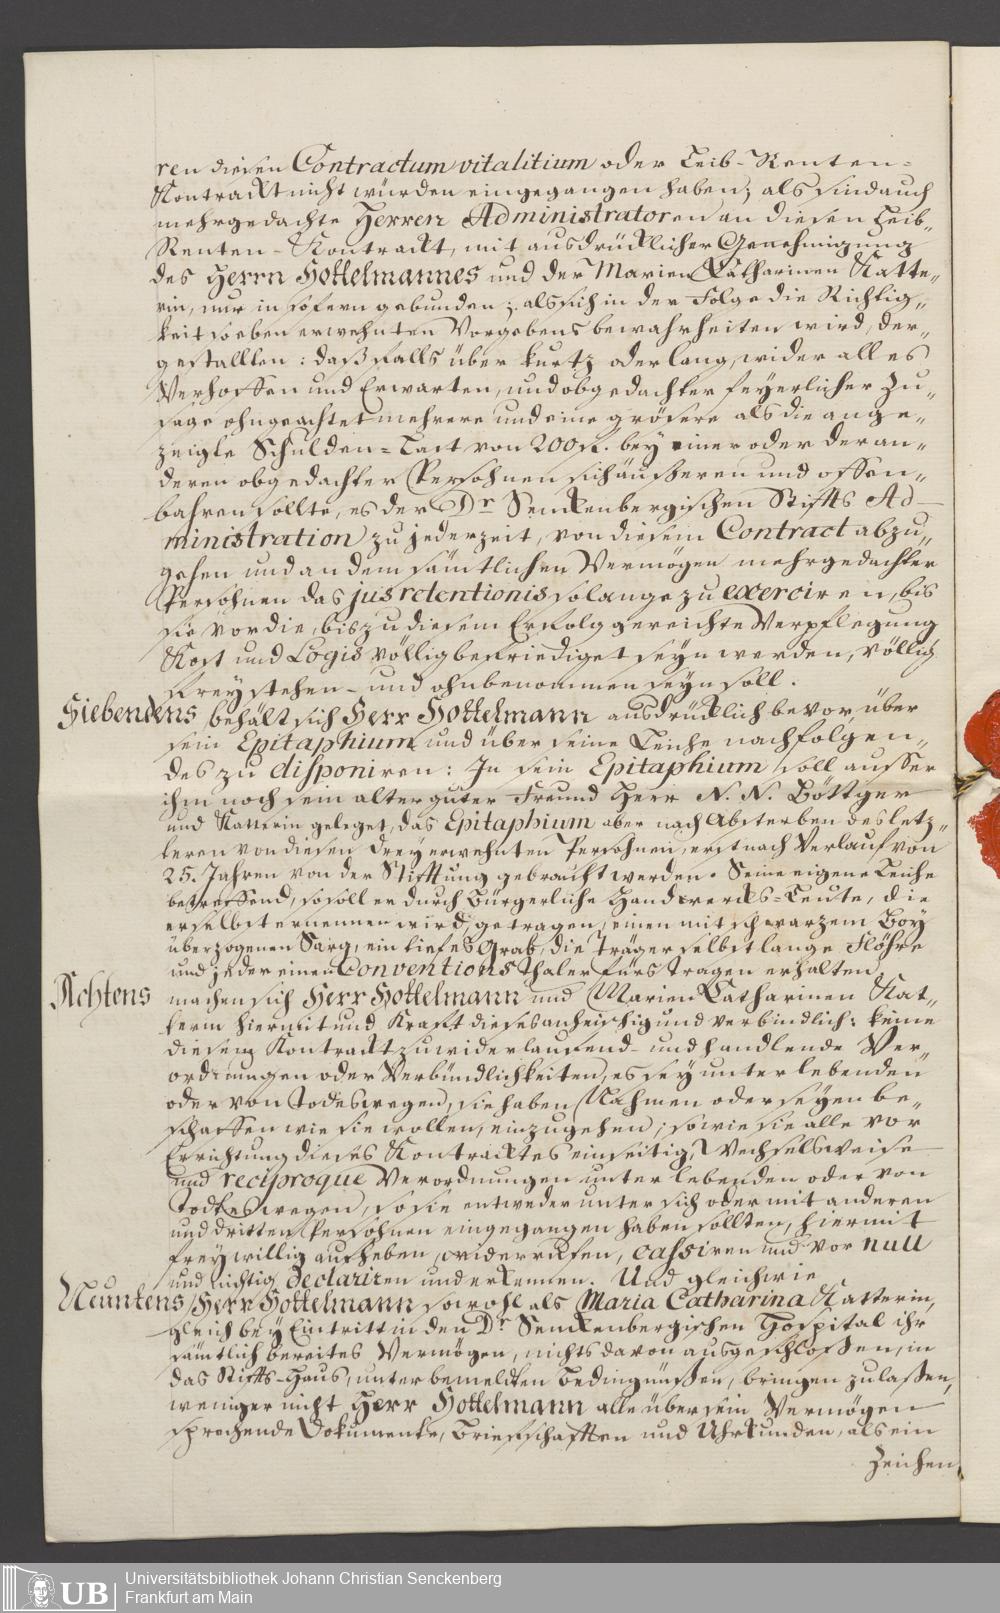 ren diesen Contractum vitalitium oder Leib-Renten-
Kontrackt nicht würden eingegangen haben; als sind auch
mehrgedachte Herren Administratoren an diesen Leib-
Renten-Kontrackt, mit ausdrücklicher Genehmigung
des Herrn Hottelmannes und der Marien Catharinen Katte-
rin, nur in sofern gebunden; als sich in der Folge die Richtig-
keit soeben erwehnten Vorgebens bewahrheiten wird, der-
gestallten: daß falls über kurtz oder lang, wider alles
Verhoffen und Erwarten, und obgedachter feyerlicher Zu-
sage ohngeachtet mehrere und eine grösere als die ange-
zeigte Schulden-Last von 200 fl. bey einer oder der an-
deren obgedachter Persohnen sich äußeren und offen-
bahren sollte, es der Dr Senckenbergischen Stiffts Ad-
ministration zu jederzeit, von diesem Contract abzu-
gehen und an dem sämtlichen Vermögen mehrgedachter
Persohnen das jus retentionis solange zu exerciren, bis
sie vor die, bis zu diesem Erfolg gereichte Verpflegung
Kost und Logis völlig befriediget seyn werden, völlig
frey stehen- und ohnbenommen seyn soll.
Siebendens behält sich Herr Hottelmann ausdrücklich bevor, über
sein Epitaphium und über seine Leiche nachfolgen-
des zu disponiren: In sein Epitaphium soll ausser
ihm noch sein alter guter Freund Herr N. N. Böttger
und Katterin geleget, das Epitaphium aber nach Absterben des letz-
teren von diesen drey erwehnten Persohnen, erst nach Verlauf von
25. Jahren von der Stifftung gebracht werden. Seine eigene Leiche
betreffend, so soll er durch Bürgerliche Handwercks-Leute, die
er selbst ernennen wird, getragen, einen mit schwarzem Boy
überzogenen Sarg, ein tiefes Grab, die Träger selbst lange Flöhre
und jeder einen Conventions Thaler fürs Tragen erhalten.
Achtens machen sich Herr Hottelmann und Marien Catharinen Kat-
terin hiermit und Krafft dieses anheischig und verbindlich: keine
diesem Kontrackt zuwiderlaufend- und handlende Ver-
ordnungen oder Verbündlichkeiten, es sey unter lebenden
oder von Todeswegen, sie haben Nahmen oder seyen be-
schaffen wie sie wollen, einzugehen; so wie sie alle vor
Errichtung dieses Kontracktes einseitig, Wechselsweise
und reciproque Verordnungen unter lebenden oder von
Todtes wegen, so sie entweder unter sich oder mit anderen
und dritten Persohnen eingegangen haben sollten, hiermit
freywillig aufheben, widerrufen, cassiren und vor null
und nichtig declariren und erkennen. Und gleichwie
Neuntens, Herr Hottelmann sowohl als Maria Catharina Katterin,
gleich bey Eintritt in den Dr Senckenbergischen Hospital ihr
sämtlich bereites Vermögen, nichts davon ausgeschloßen, in
das Stiffts-Haus, unter bemeldten Bedingnüßen, bringen zu laßen,
weniger nicht Herr Hottelmann alle über sein Vermögen
sprechende Dokumente, Briefschafften und Uhrkunden, als ein
Zeichen
UB
Universitätsbibliothek Johann Christian Senckenberg
Frankfurt am Main